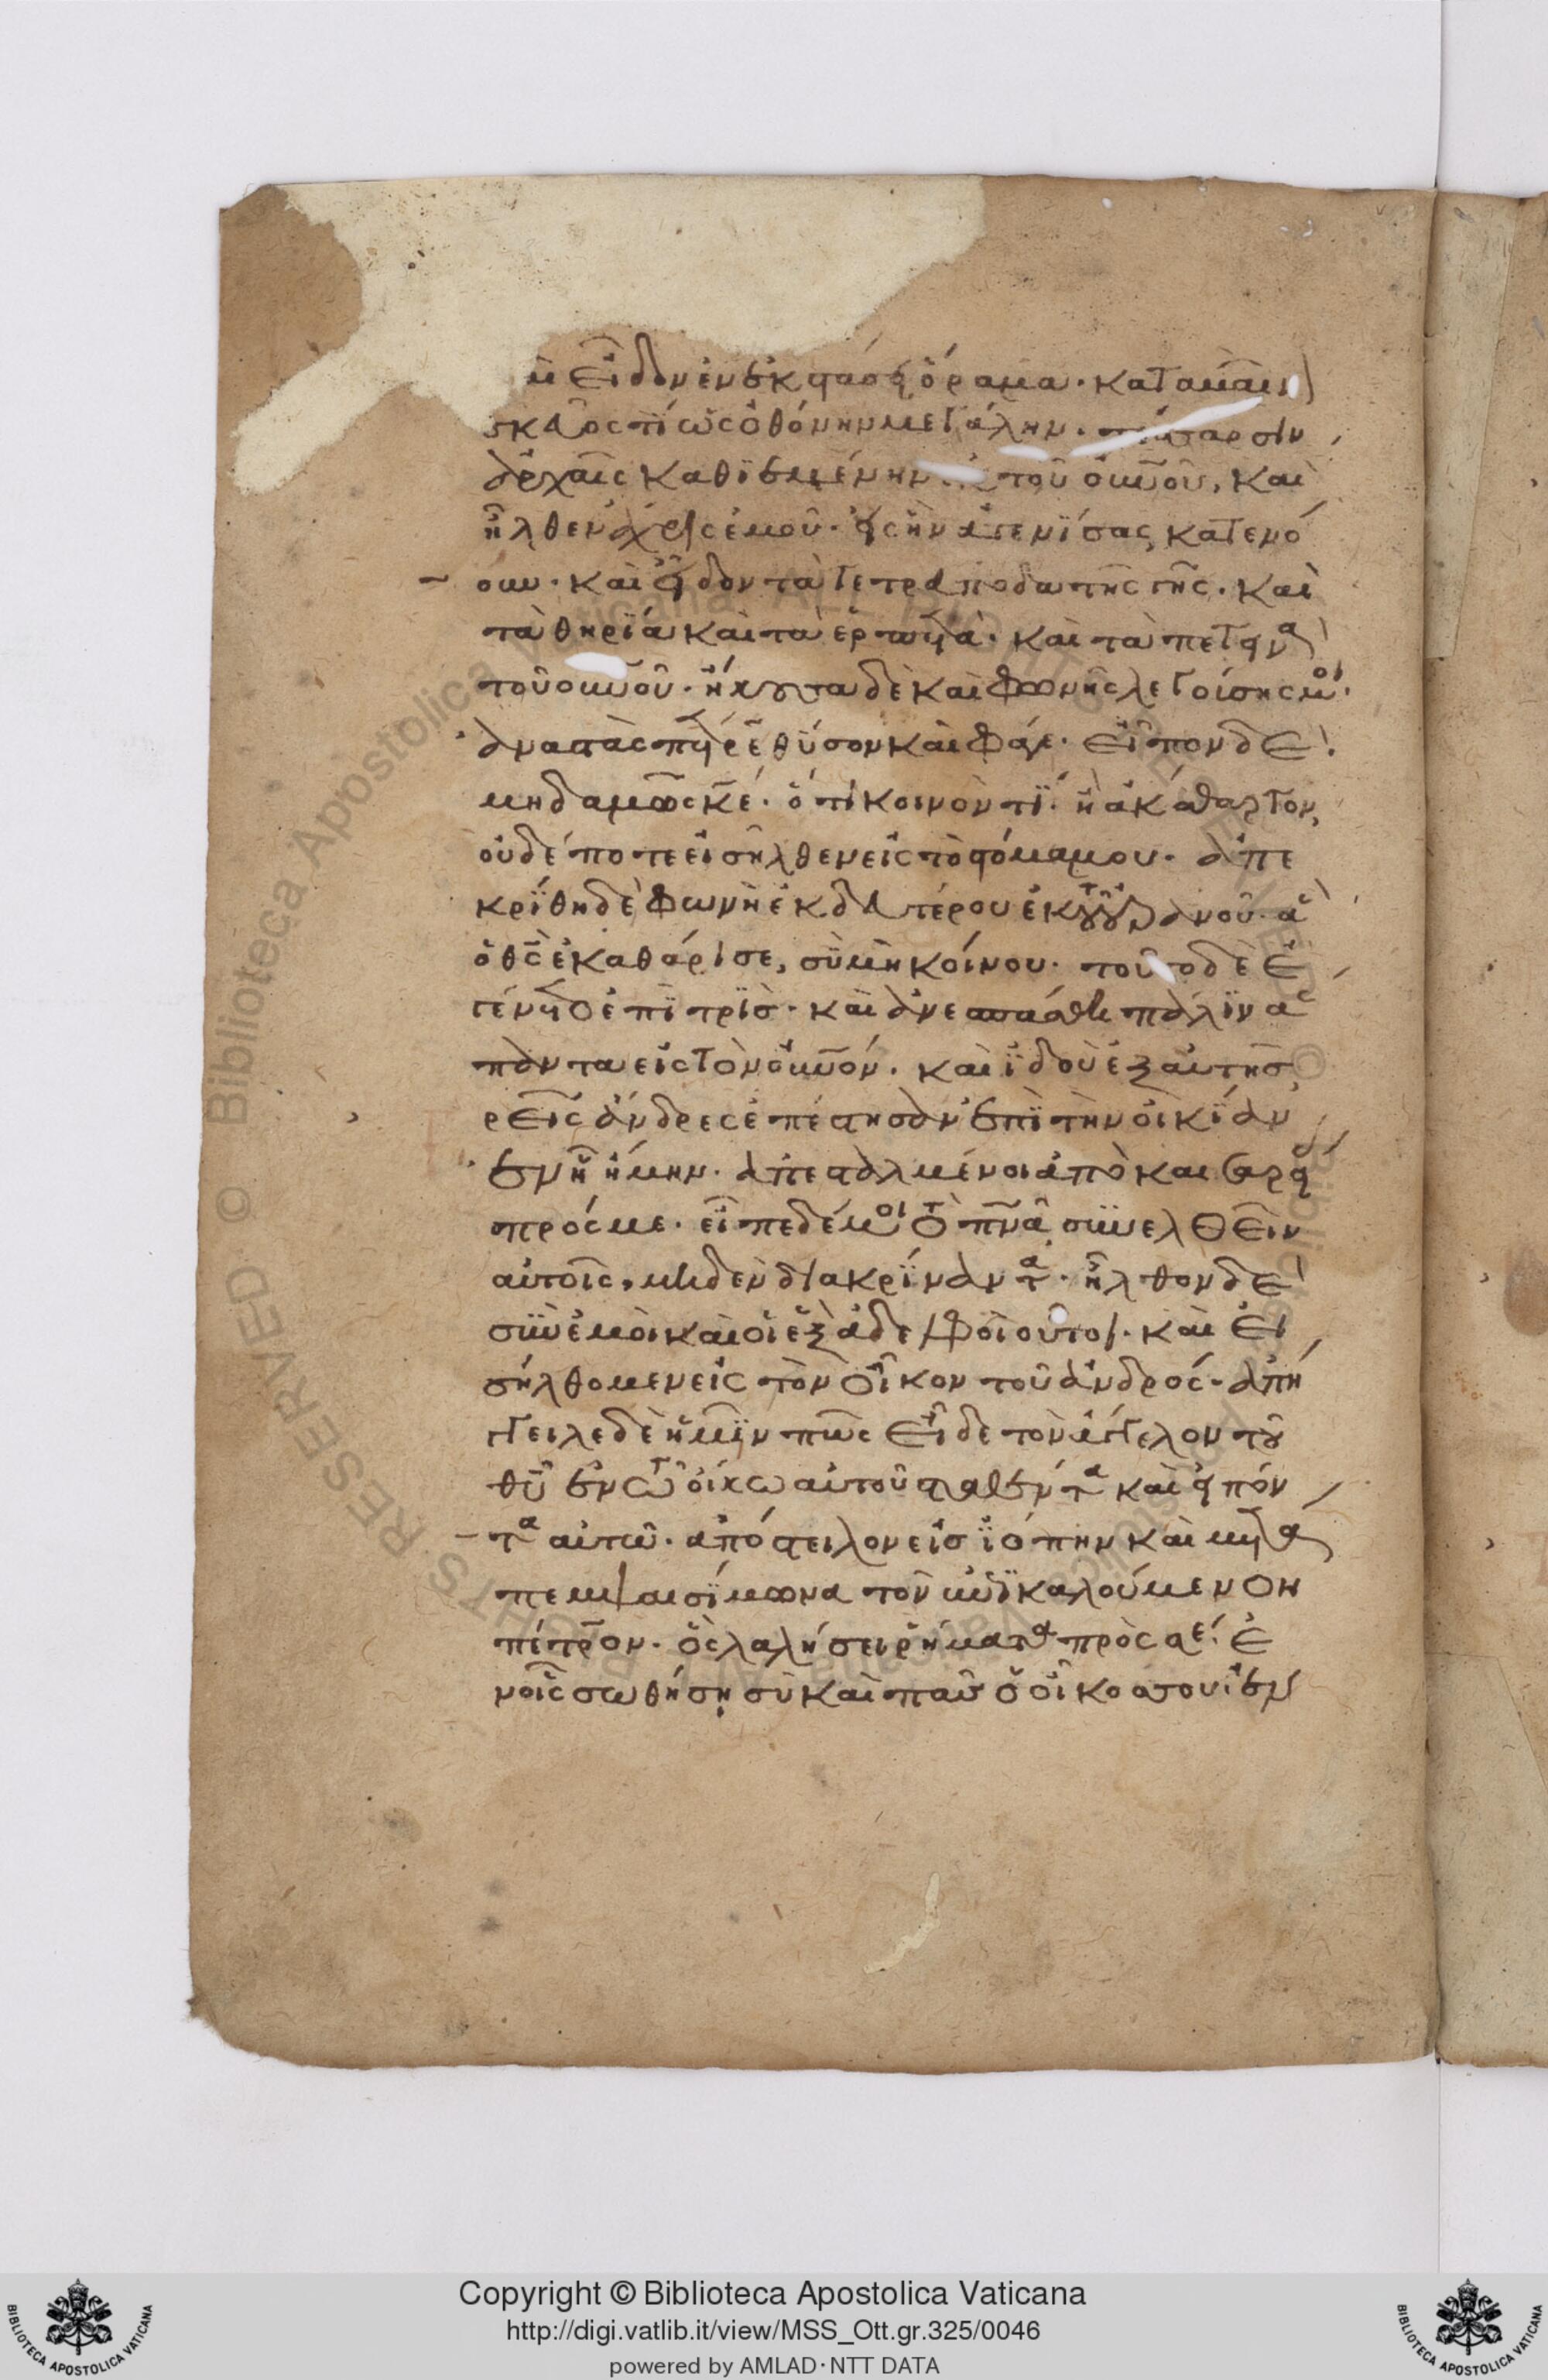 κ(αὶ) εἶδον ἐν ἐκστάσει ὅραμα· καταβαῖνον
σκεῦός τι ὡς ὀθόνην μεγάλην· τέτταρσιν
ἀρχαῖς καθϊεμένην ἐκ τοῦ οὐνοῦ, καὶ
ἦλθεν ἄχρις ἐμοῦ· εἰς ἣν ἀτενίσας κατενό
ουν· καὶ εἶδον τὰ τετράποδα τῆς γῆς· καὶ
τὰ θηρία καὶ τὰ ἑρπετὰ· καὶ τὰ πετεινὰ
τοῦ οὐνοῦ· ἤκουσα δὲ καὶ φωνῆς λεγούσης μοι·
ἀναστὰς πέτρε θῦσον καὶ φάγε· εἶπον δὲ·
μηδαμῶς κε· ὅτι κοινόν τϊ ἢ ἀκάθαρτον,
οὐδέποτε εἰσῆλθεν εἰς τὸ στόμα μου· ἀπε
κρίθη δὲ φωνὴ ἐκ δευτέρου ἐκ τοῦ οὐνοῦ· ἃ
ὁ θς ἐκαθάρισε, σὺ μὴ κοίνου· τοῦτο δὲ ἐ
γένετο ἐπὶ τρίς· καὶ ἀνεσπάσθη πάλιν ἅ
παντα εἰς τὸν οὐνόν· καὶ ἰδοὺ ἐξαυτῆς
ρεῖς ἄνδρες ἐπέστησαν ἐπὶ τὴν οἰκίαν
ἐν ᾗ ἤμην· ἀπεσταλμένοι ἀπὸ καισαρείας
πρός με· εἶπε δέ μοι τὸ πνα συνελθεῖν
αὐτοῖς, μηδὲν διακρίναντα· ἦλθον δὲ
σὺν ἐμοὶ καὶ οἱ ἓξ ἀδελφοὶ οὗτοι· καὶ εἰ
σήλθομεν εἰς τὸν οἶκον τοῦ ἀνδρός· ἀπή
γγειλε δὲ ἡμῖν πῶς εἶδε τὸν ἄγγελον τοῦ
θυ ἐν τῶ οἴκω αὐτοῦ σταθέντα καὶ εἰπόν
τα αὐτῶ· ἀπόστειλον εἰς ἰόπην καὶ μετα
πεμψαι σίμωνα τὸν ἐπικαλούμενον
πέτρον· ὃς λαλήσει ῥήματα πρὸς σέ· ἐ
νοῖς σωθήση σὺ καὶ πᾶς ὁ οἶκος σου· ἐν
Copyright © Biblioteca Apostolica Vaticana
http://digi.vatlib.it/view/MSS_Ott.gr.325/0046
powered by AMLAD·NTT DATA